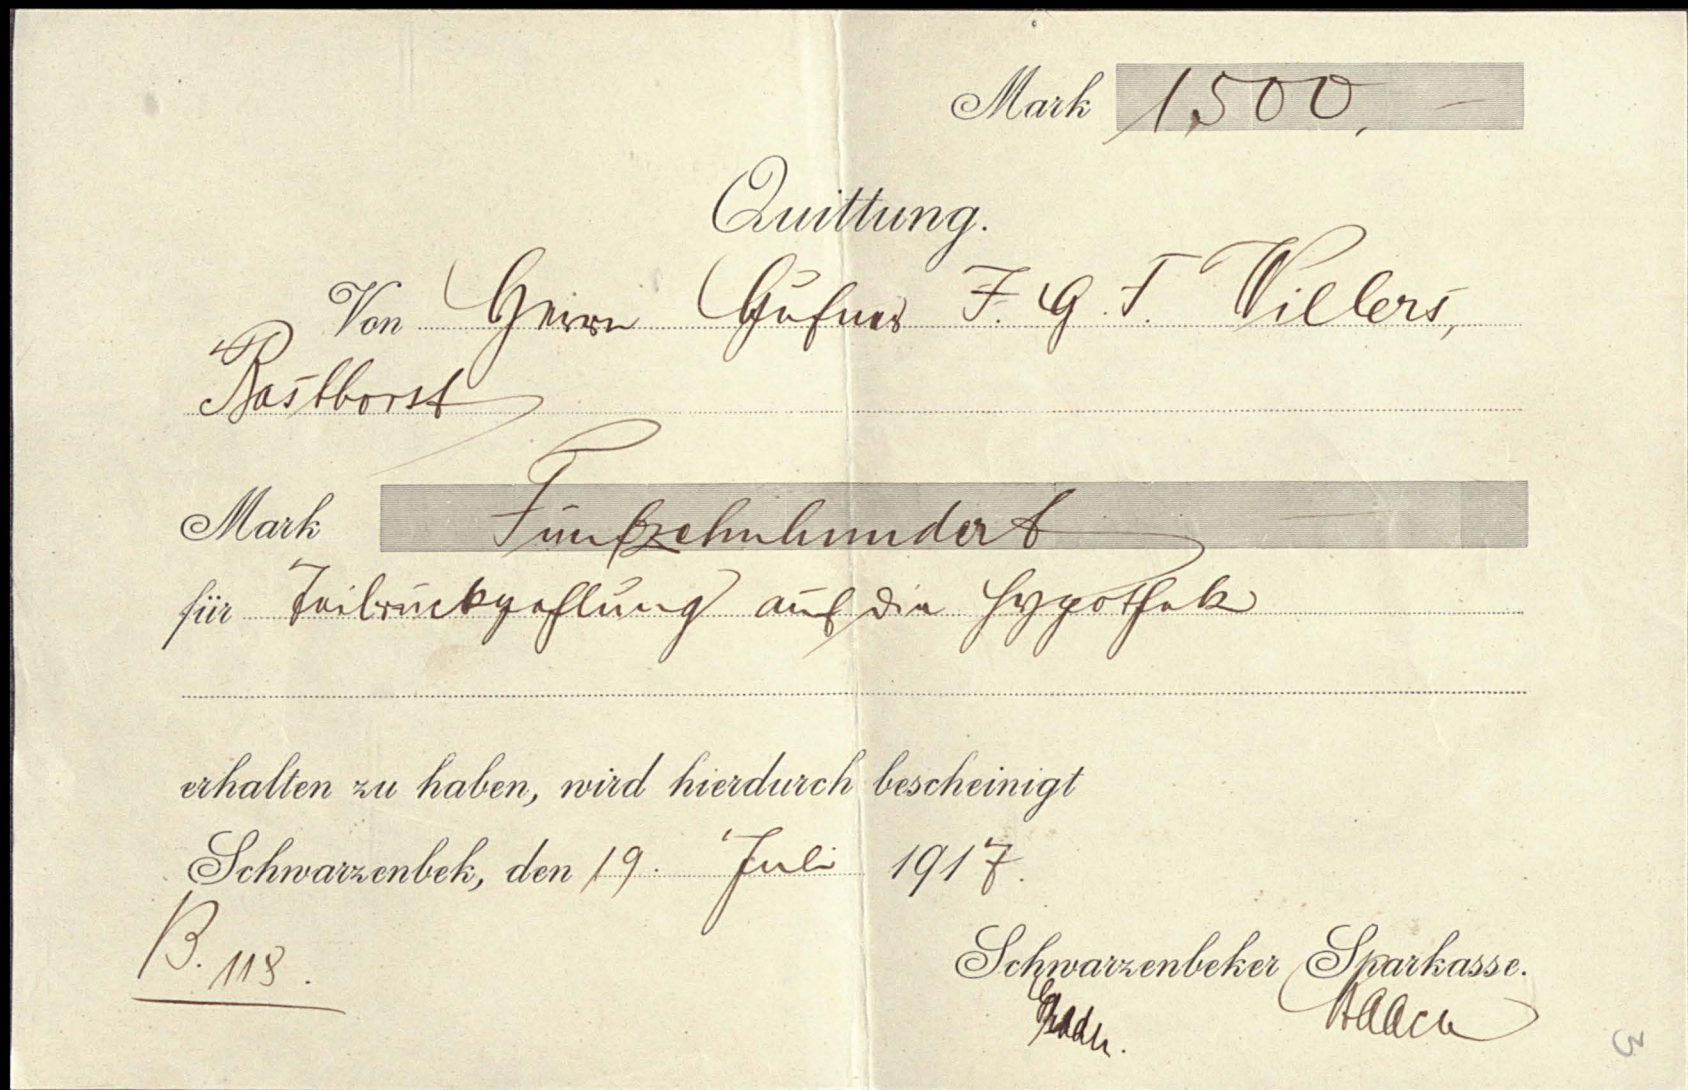 Mark 1500,—
Quittung.
Von Herrn Hufner F. G. F. Willers,
Basthorst
Mark Fünfzehnhundert —
für Teilrückzahlung auf die Hypothek
erhalten zu haben, wird hierdurch bescheinigt
Schwarzenbek, den 19. Juli 1917.
B. 118.
Schwarzenbeker Sparkasse.
3